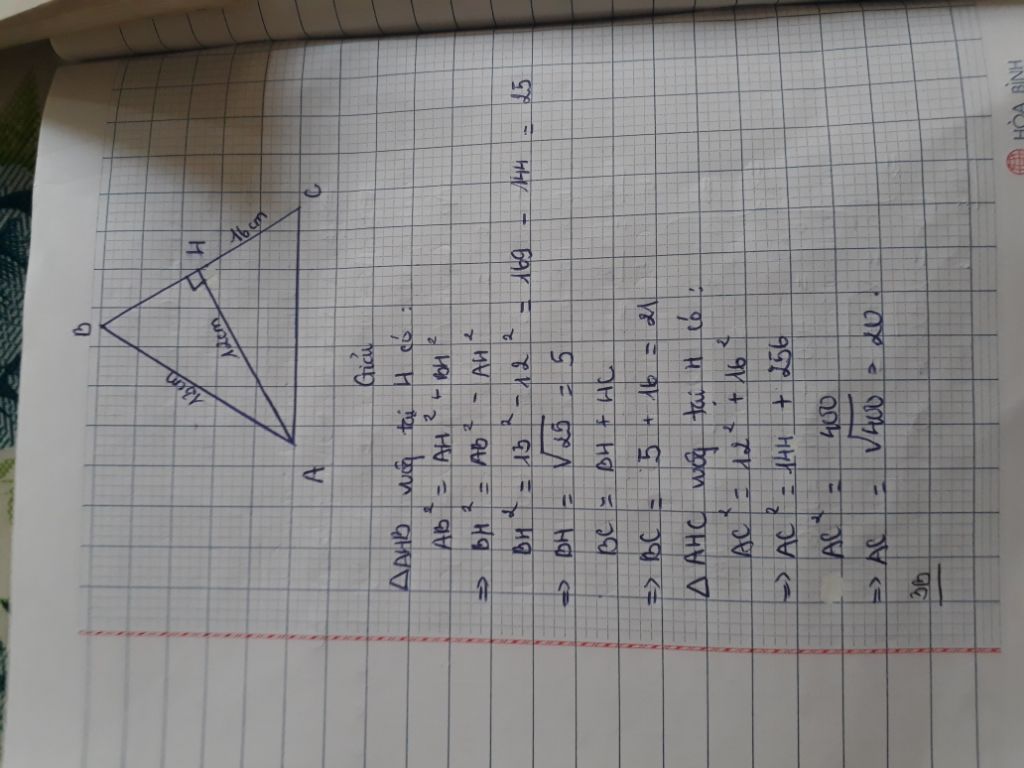 B
13cm
12cm
H
16cm
A
C
Giải
ΔAHB vuông tại H có :
AB² = AH² + BH²
=> BH² = AB² - AH²
BH² = 13² - 12² = 169 - 144 = 25
=> BH = √25 = 5
BC = BH + HC
=> BC = 5 + 16 = 21
Δ AHC vuông tại H có :
AC² = 12² + 16²
=> AC² = 144 + 256
AC² = 400
=> AC = √400 = 20.
HÒA BÌNH